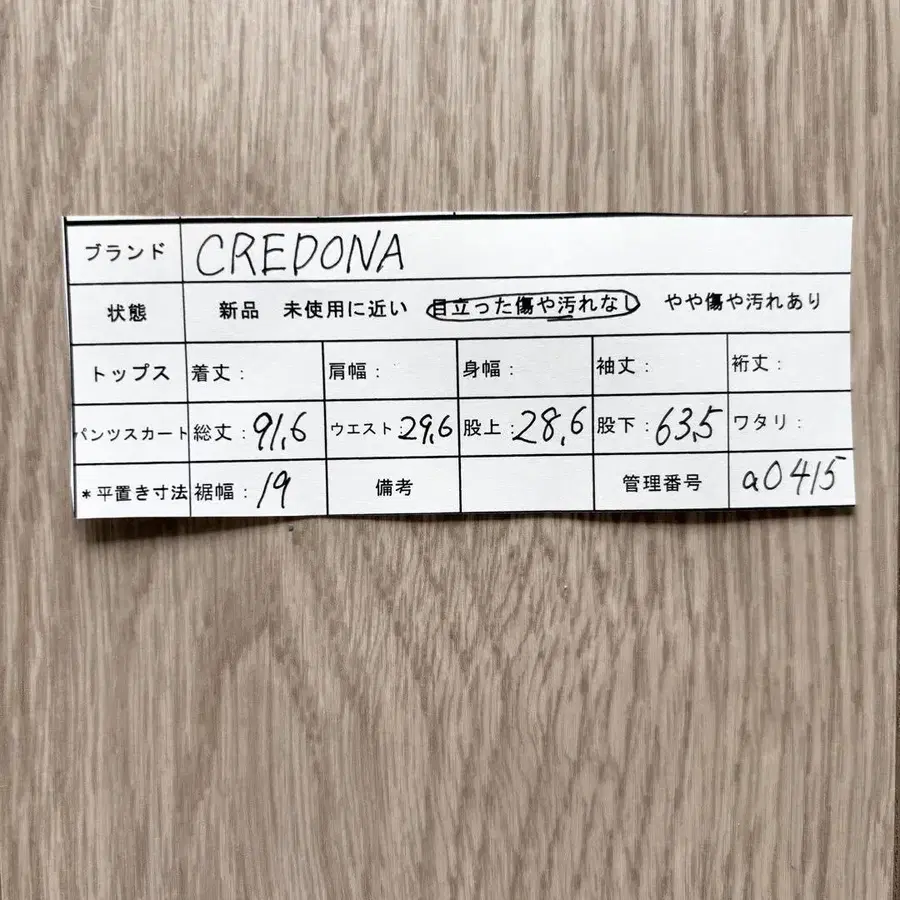 ブランド CREDONA
状態 新品 未使用に近い 目立った傷や汚れなし やや傷や汚れあり
トップス 着丈: 肩幅: 身幅: 袖丈: 裄丈:
パンツスカート 総丈: 91,6 ウエスト: 29,6 股上: 28,6 股下: 63,5 ワタリ:
*平置き寸法 裾幅: 19 備考 管理番号 a0415